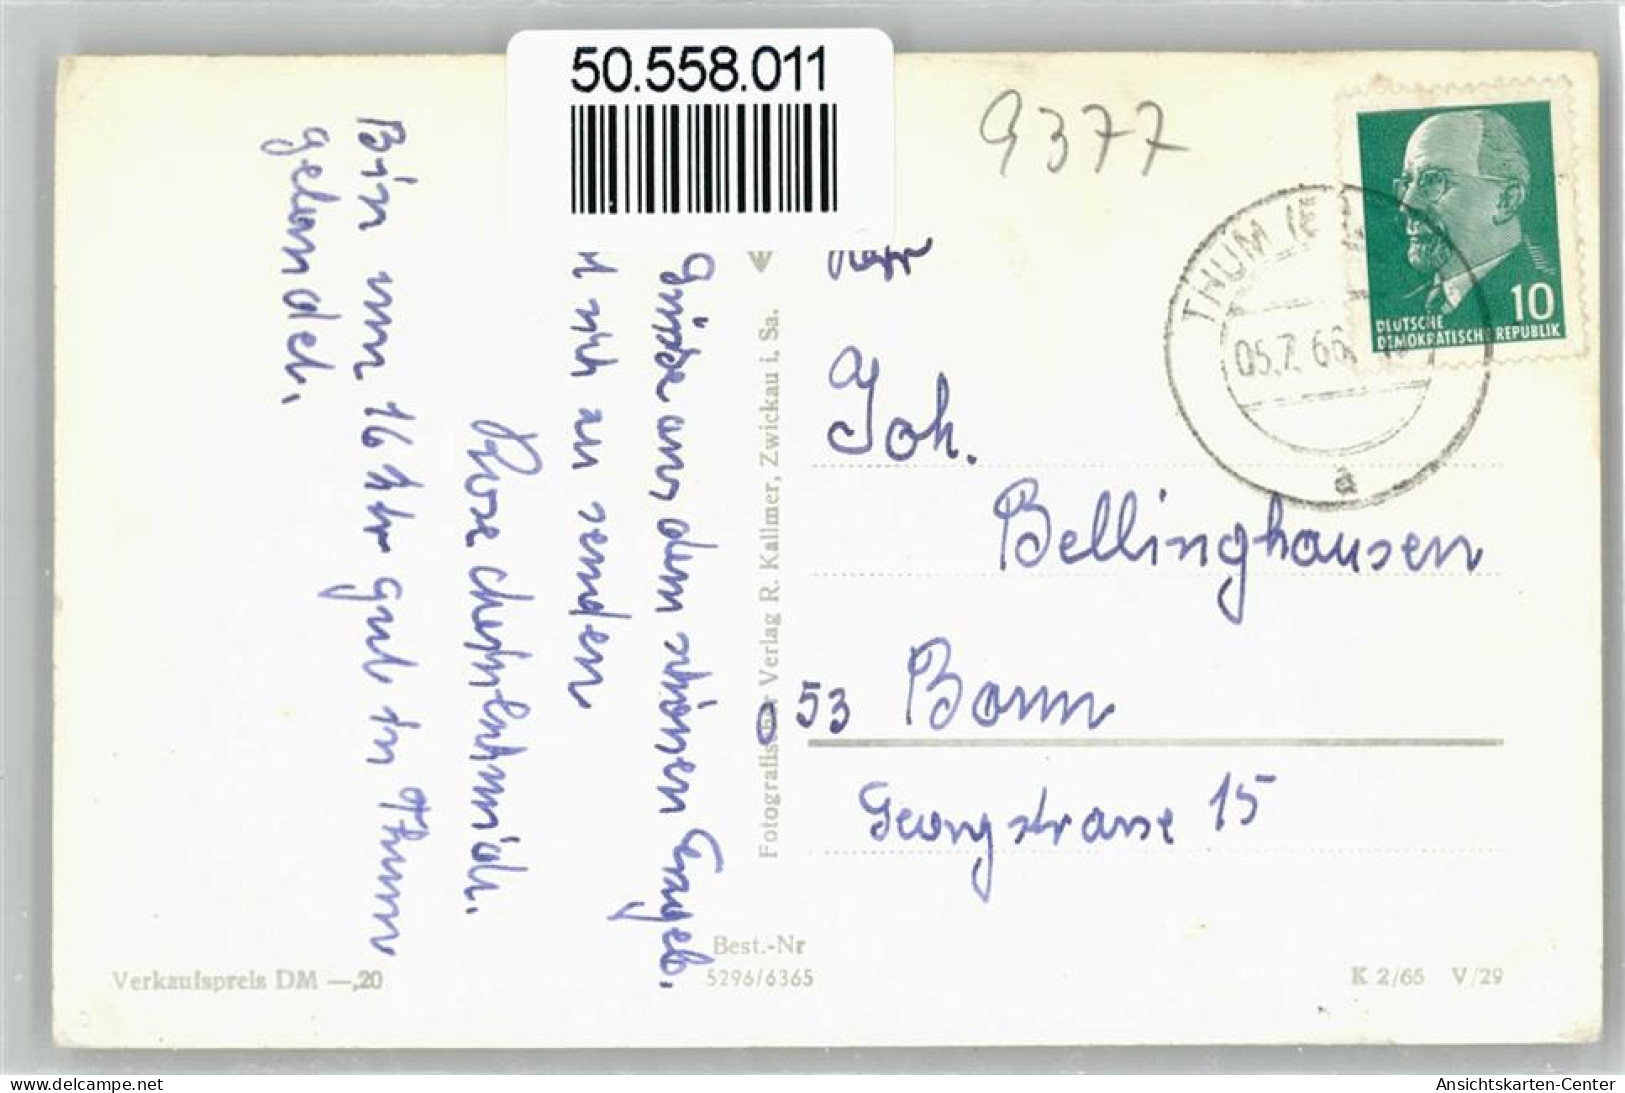 50.558.011
9377
THUM
05.7.66
10
DEUTSCHE
DEMOKRATISCHE REPUBLIK
Herr
Joh.
Bellinghausen
053 Bonn
Georgstrasse 15
Grüße aus dem schönen Erzgeb.
zu senden
Rose
Bin um 16 hr gut in Thum
gelandet.
Fotografischer Verlag R. Kallmer, Zwickau i. Sa.
Best.-Nr
5296/6365
Verkaufspreis DM —,20
K 2/65 V/29
www.delcampe.net
Ansichtskarten-Center